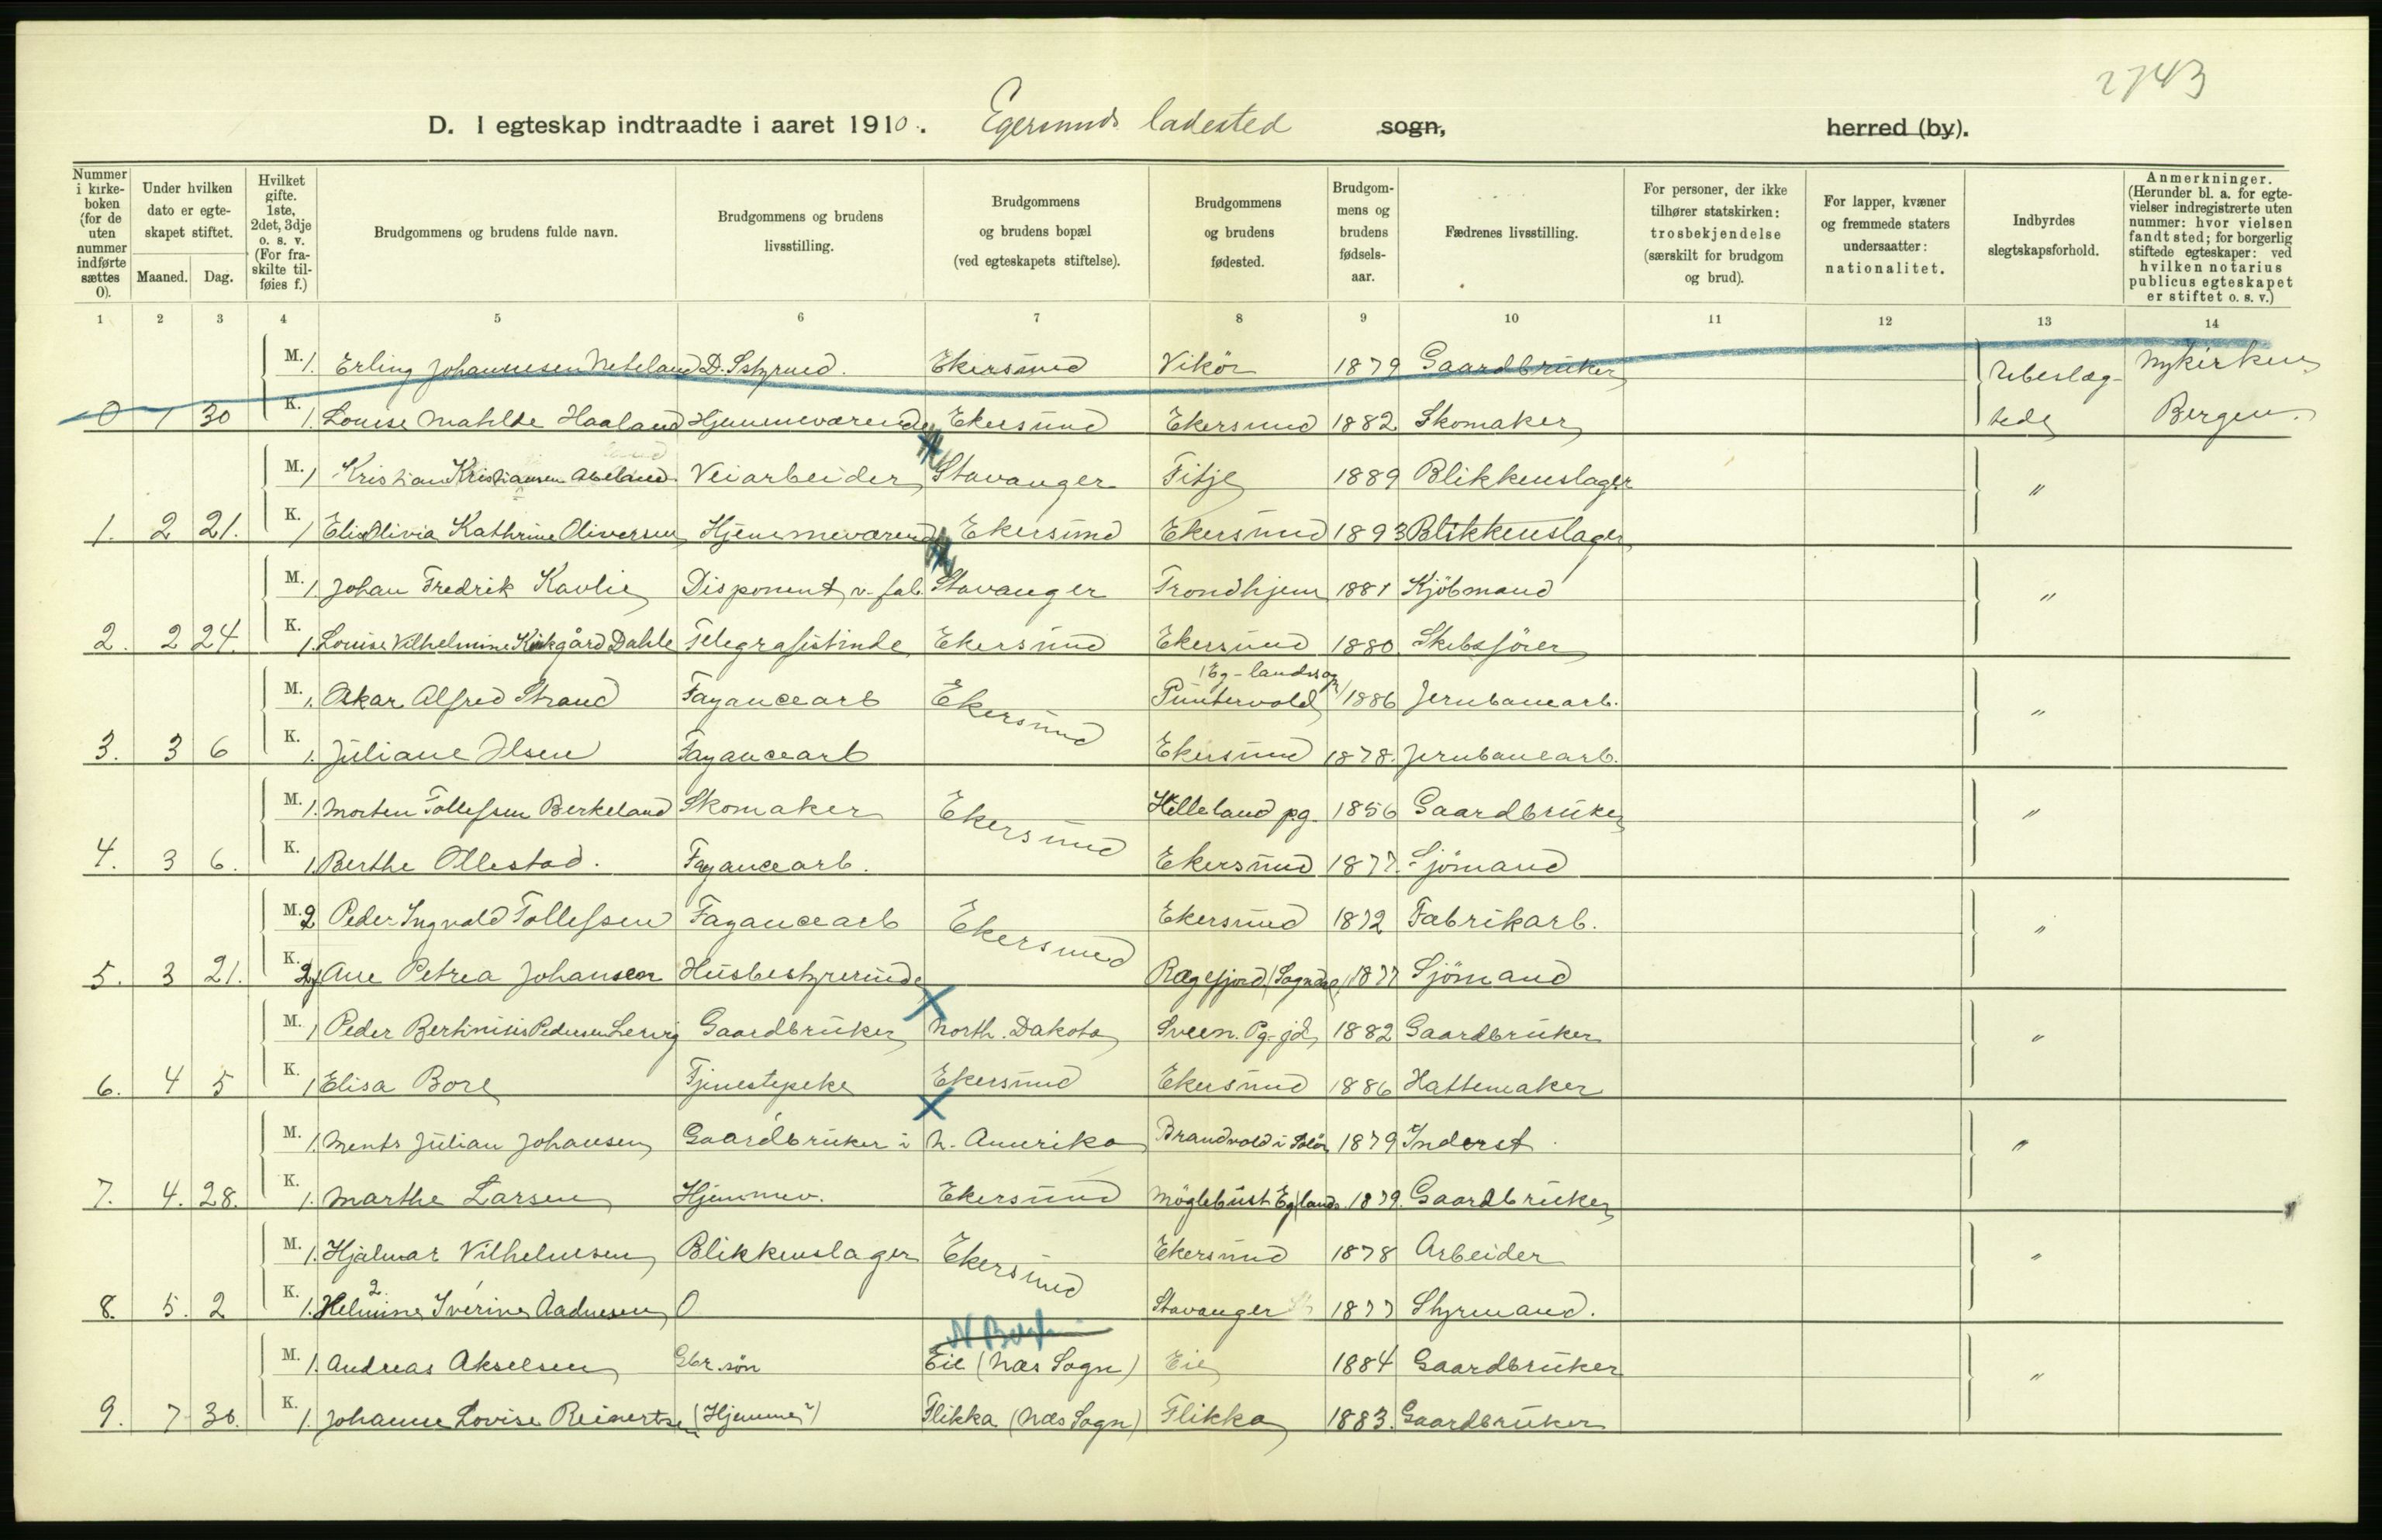 2743
D. I egteskap indtraadte i aaret 1910. Egersunds ladested sogn, herred (by).
Nummer i kirkeboken (for de uten nummer indførte sættes 0).
Under hvilken dato er egteskapet stiftet.
Maaned. Dag.
Hvilket gifte. 1ste, 2det, 3dje o. s. v. (For fraskilte tilføies f.)
Brudgommens og brudens fulde navn.
Brudgommens og brudens livsstilling.
Brudgommens og brudens bopæl (ved egteskapets stiftelse).
Brudgommens og brudens fødested.
Brudgommens og brudens fødselsaar.
Fædrenes livsstilling.
For personer, der ikke tilhører statskirken: trosbekjendelse (særskilt for brudgom og brud).
For lapper, kvæner og fremmede staters undersaatter: nationalitet.
Indbyrdes slegtskapsforhold.
Anmerkninger. (Herunder bl. a. for egtevielser indregistrerte uten nummer: hvor vielsen fandt sted; for borgerlig stiftede egteskaper: ved hvilken notarius publicus egteskapet er stiftet o. s. v.)
1 2 3 4 5 6 7 8 9 10 11 12 13 14
M. 1. Erling Johannesen Neteland D. Sstyrmd. Ekersund Vikör 1879 Gaardbruker Ubeslæg- Nykirken
0 1 30 K. 1. Louise Mathilde Haaland Hjemmeværende Ekersund Ekersund 1882 Skomaker tede Bergen.
M. 1 Kristian Kristiansen Abeland Veiarbeider Stavanger Fitje 1889 Blikkenslager "
1. 2 21. K. 1 Elis Olivia Kathrine Oliversen Hjemmeværende Ekersund Ekersund 1893 Blikkenslager
M. 1 Johan Fredrik Kavlie Disponent v. fab. Stavanger Trondhjem 1881 Kjöbmand "
2. 2 24. K. 1. Louise Vilhelmine Kirkgård Dahle Telegrafistinde Ekersund Ekersund 1880 Skibsförer
M. 1. Oskar Alfred Strand Fayancearb Ekersund Puntervold (Eg-landssogn) 1886 Jernbanearb. "
3. 3 6 K. 1. Juliane Olsen Fayancearb Ekersund 1878. Jernbanearb.
M. 1. Morten Tollefsen Berkeland Skomaker Ekersund Helleland pg. 1856 Gaardbruker "
4. 3 6. K. 1. Berthe Ollestad. Fayancearb. Ekersund 1877. Sjömand
M. 2 Peder Ingvald Tollefsen Fayancearb Ekersund Ekersund 1872 Fabrikarb. "
5. 3 21. K. 2 Ane Petrea Johansen Husbestyrerinde Rægefjord (Sogndal) 1877 Sjömand
M. 1 Peder Bertinius Pedersen Lervig Gaardbruker North. Dakota Sveen. Pg-jd 1882 Gaardbruker "
6. 4 5 K. 1 Elisa Bore Tjenestepike Ekersund Ekersund 1886 Hattemaker
M. 1. Ments Julian Johansen Gaardbruker i N. Amerika Brandvold i Solör 1879 Inderst. "
7. 4. 28. K. 1. Marthe Larsen Hjemmev. Ekersund Möglebust Eg lands. 1879. Gaardbruker
M. 1. Hjalmar Vilhelmsen Blikkenslager Ekersund Ekersund 1878 Arbeider "
8. 5. 2 K. 1. 2. Helmine Iverine Aadnesen 0 Stavanger 1877 Styrmand.
M. 1. Andreas Akselsen Gbr. sön Eie (Næs Sogn) Eie 1884 Gaardbruker "
9. 7 30. K. 1. Johanne Lovise Reinertsen (Hjemme") Flikka (Næs Sogn) Flikka 1883. Gaardbruker